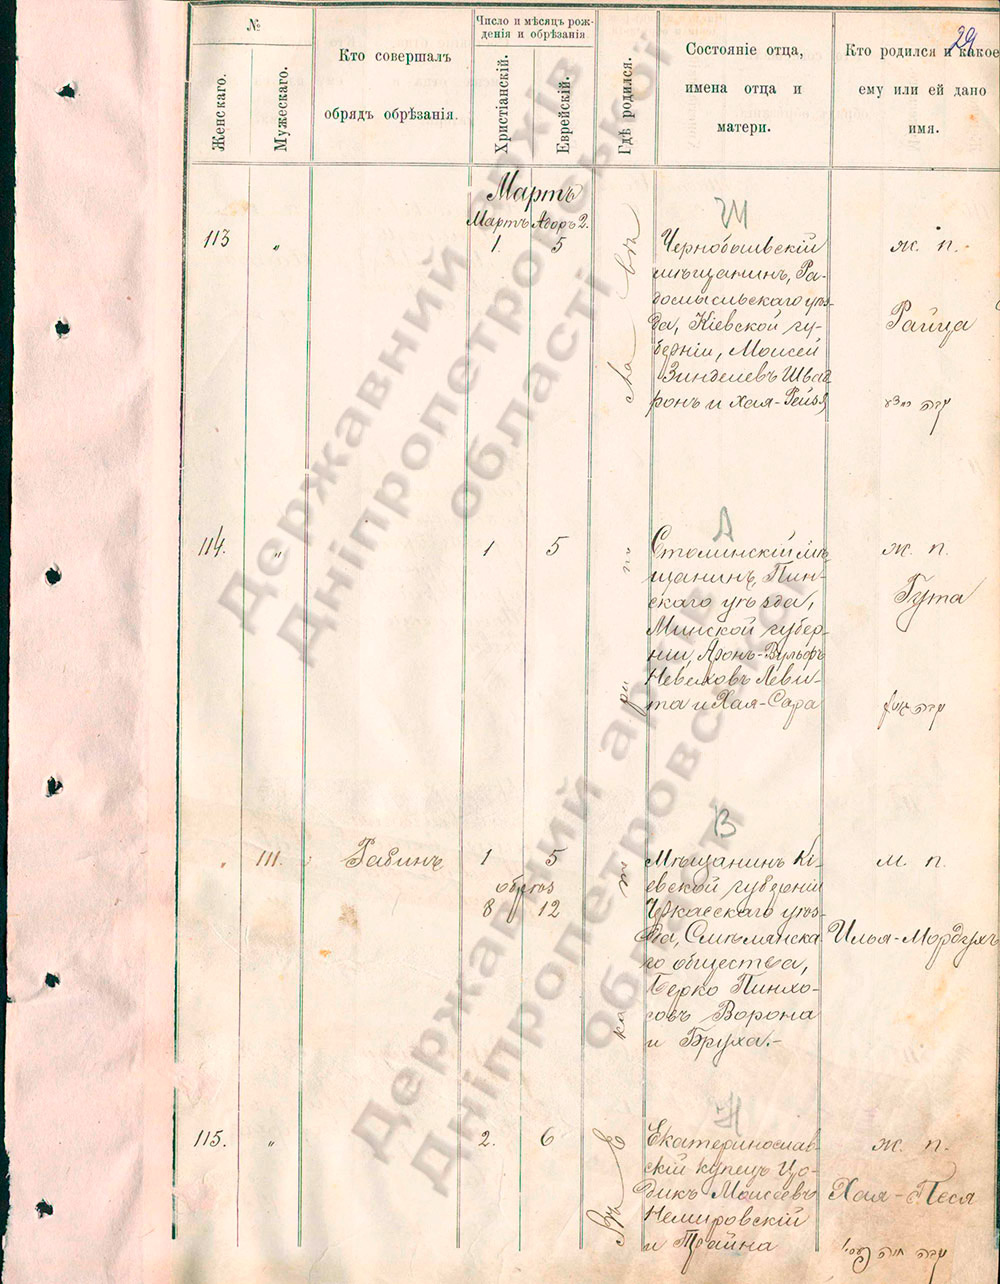 29
№
Женскаго.
Мужескаго.
Кто совершалъ
обрядъ обрѣзанія.
Число и мѣсяцъ рож-
денія и обрѣзанія
Христіанскій.
Еврейскій.
Гдѣ родился.
Состояніе отца,
имена отца и
матери.
Кто родился и какое
ему или ей дано
имя.
Мартъ
Мартъ Адоръ 2.
113 „ 1. 5
Ш
Чернобыльскій
мѣщанинъ, Ра-
домысльскаго уѣз-
да, Кіевской гу-
берніи, Моисей
Зинделевъ Швад
ронъ и Хая-Рейзя
ж. п.
Райца
114. „ 1 5
Л
Столинскій мѣ
щанинъ, Пин-
скаго уѣзда,
Минской губер-
ніи, Аронъ-Вульфъ
Невеховъ Леви-
та и Хая-Сара
ж. п.
Гута
„ 111. Рабинъ 1 5
обрѣз
8 12
В
Мѣщанинъ Кі-
евской губерніи
Черкасскаго уѣз-
да, Смѣлянска-
го общества,
Берко Пинхо-
совъ Ворона
и Бруха.-
м. п.
Илья-Мордухъ
115. „ 2. 6
Н
Екатеринослав-
скій купецъ Цо-
дикъ Моисеевъ
Немировскій
и Трайна
ж. п.
Хая-Песя
Въ Екатеринославѣ
Державний архів
Дніпропетровської
області
Державний архів
Дніпропетровської
області